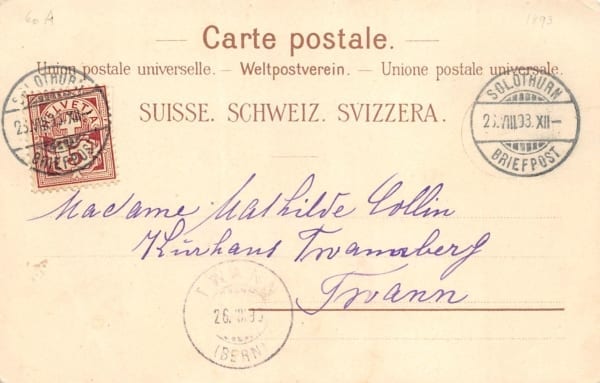 60 A
1893
Carte postale.
Union postale universelle. – Weltpostverein. – Unione postale universale.
SUISSE. SCHWEIZ. SVIZZERA.
HELVETIA
SOLOTHURN
BRIEFPOST
SOLOTHURN
23.VIII.93.XII–
BRIEFPOST
Madame Mathilde Collin
Kurhaus Twannberg
Twann
TWANN
(BERN)